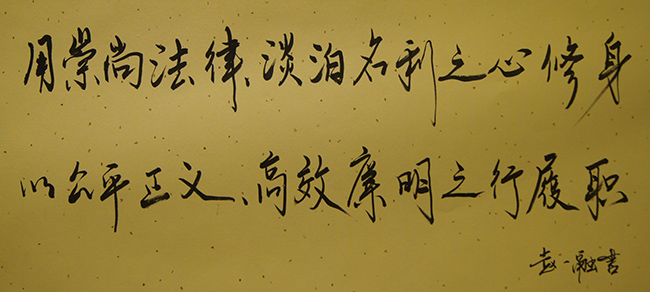 用崇尚法律、淡泊名利之心修身
以公平正义、高效廉明之行履职
赵一融书